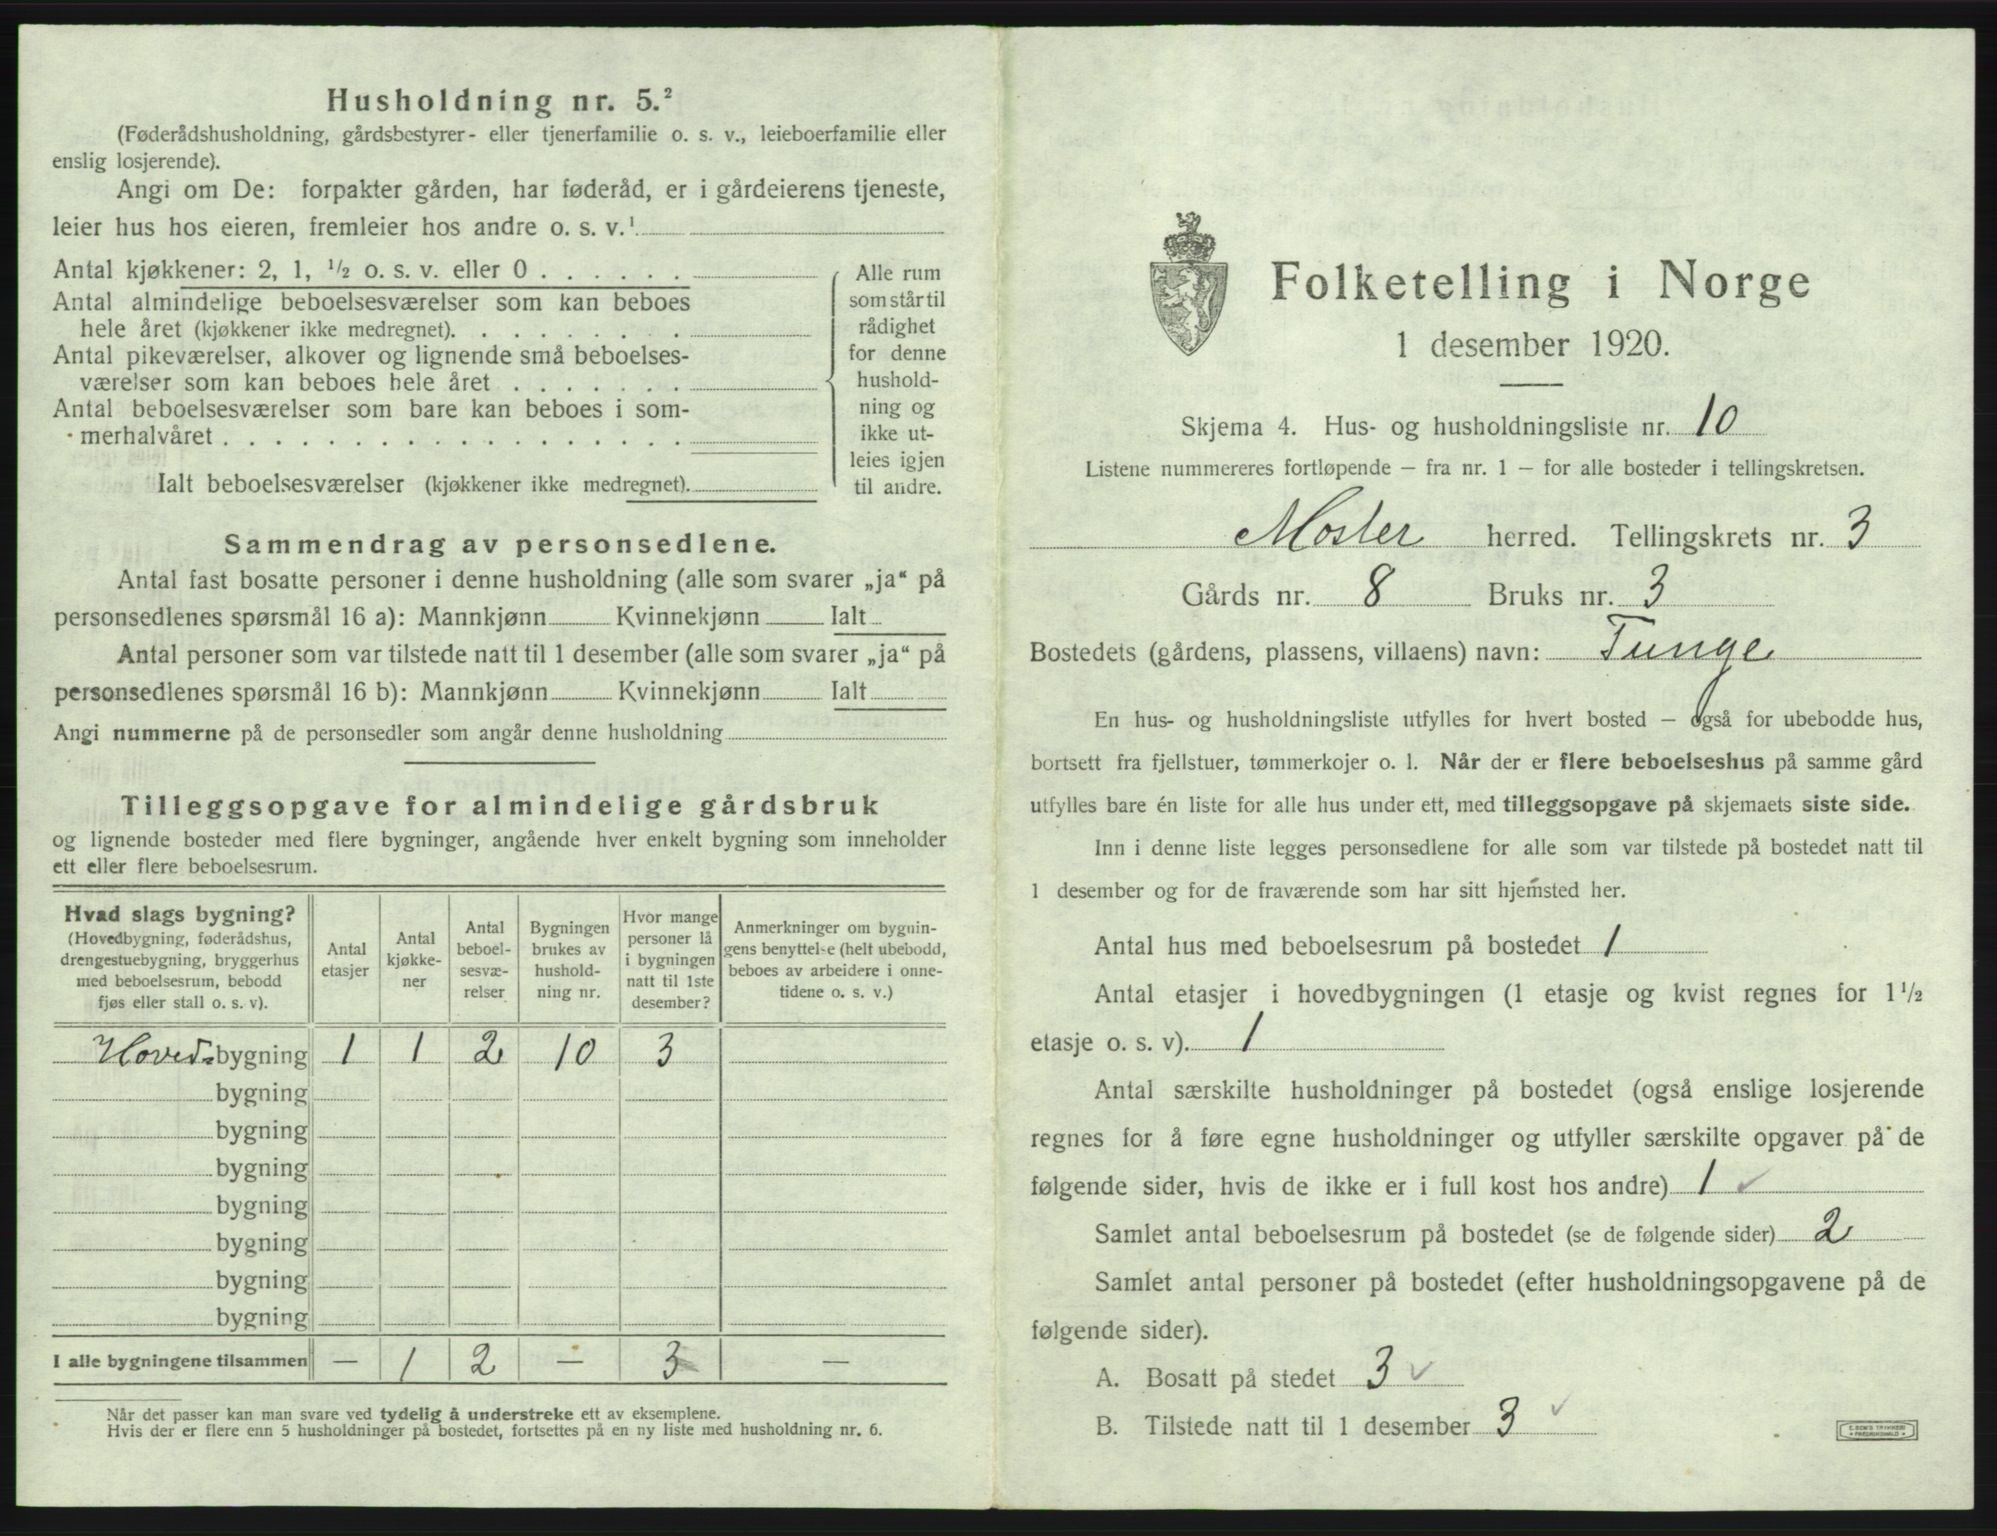 Husholdning nr. 5.²
(Føderådshusholdning, gårdsbestyrer- eller tjenerfamilie o. s. v., leieboerfamilie eller
enslig losjerende).
Angi om De: forpakter gården, har føderåd, er i gårdeierens tjeneste,
leier hus hos eieren, fremleier hos andre o. s. v.¹
Antal kjøkkener: 2, 1, ½ o. s. v. eller 0 . . . . . .
Antal almindelige beboelsesværelser som kan beboes
hele året (kjøkkener ikke medregnet). . . . . . . . .
Antal pikeværelser, alkover og lignende små beboelses-
værelser som kan beboes hele året . . . . . . .
Antal beboelsesværelser som bare kan beboes i som-
merhalvåret . . . . . . . . . . . . . . . . . .
Ialt beboelsesværelser (kjøkkener ikke medregnet).
Alle rum
som står til
rådighet
for denne
hushold-
ning og
ikke ut-
leies igjen
til andre.
Sammendrag av personsedlene.
Antal fast bosatte personer i denne husholdning (alle som svarer „ja“ på
personsedlenes spørsmål 16 a): Mannkjønn Kvinnekjønn Ialt
Antal personer som var tilstede natt til 1 desember (alle som svarer „ja“ på
personsedlenes spørsmål 16 b): Mannkjønn Kvinnekjønn Ialt
Angi nummerne på de personsedler som angår denne husholdning
Tilleggsopgave for almindelige gårdsbruk
og lignende bosteder med flere bygninger, angående hver enkelt bygning som inneholder
ett eller flere beboelsesrum.
Hvad slags bygning?
(Hovedbygning, føderådshus,
drengestuebygning, bryggerhus
med beboelsesrum, bebodd
fjøs eller stall o. s. v).
Antal
etasjer
Antal
kjøkke-
ner
Antal
beboel-
sesvæ-
relser
Bygningen
brukes av
hushold-
ning nr.
Hvor mange
personer lå
i bygningen
natt til 1ste
desember?
Anmerkninger om bygnin-
gens benyttelse (helt ubebodd,
beboes av arbeidere i onne-
tidene o. s. v.)
Hovedbygning 1 1 2 10 3
bygning
bygning
bygning
bygning
bygning
bygning
bygning
I alle bygningene tilsammen — 1 2 — 3 —
Når det passer kan man svare ved tydelig å understreke ett av eksemplene.
Hvis der er flere enn 5 husholdninger på bostedet, fortsettes på en ny liste med husholdning nr. 6.
Folketelling i Norge
1 desember 1920.
Skjema 4. Hus- og husholdningsliste nr. 10
Listene nummereres fortløpende — fra nr. 1 — for alle bosteder i tellingskretsen.
Moster herred. Tellingskrets nr. 3
Gårds nr. 8 Bruks nr. 3
Bostedets (gårdens, plassens, villaens) navn: Tunge
En hus- og husholdningsliste utfylles for hvert bosted — også for ubebodde hus,
bortsett fra fjellstuer, tømmerkojer o. l. Når der er flere beboelseshus på samme gård
utfylles bare én liste for alle hus under ett, med tilleggsopgave på skjemaets siste side.
Inn i denne liste legges personsedlene for alle som var tilstede på bostedet natt til
1 desember og for de fraværende som har sitt hjemsted her.
Antal hus med beboelsesrum på bostedet 1
Antal etasjer i hovedbygningen (1 etasje og kvist regnes for 1½
etasje o. s. v). 1
Antal særskilte husholdninger på bostedet (også enslige losjerende
regnes for å føre egne husholdninger og utfyller særskilte opgaver på de
følgende sider, hvis de ikke er i full kost hos andre) 1 ✓
Samlet antal beboelsesrum på bostedet (se de følgende sider) 2
Samlet antal personer på bostedet (efter husholdningsopgavene på de
følgende sider).
A. Bosatt på stedet 3 ✓
B. Tilstede natt til 1 desember 3 ✓